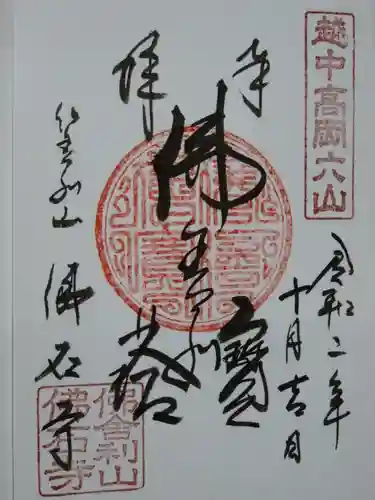 越中高岡六山
奉拝
令和二年
十月吉日
佛舎利
寶塔
仏舎利山
佛石寺
佛舎利山
佛石寺